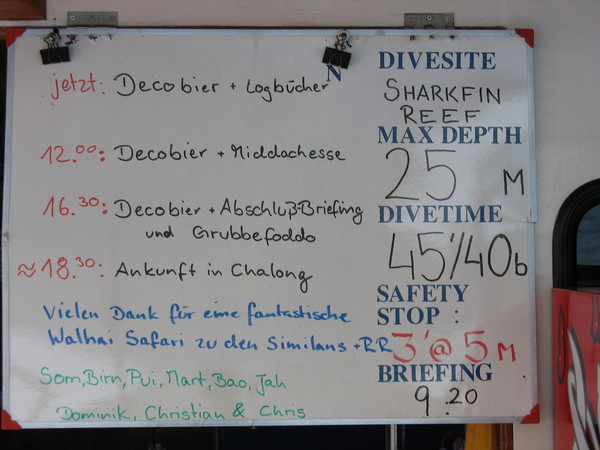 jetzt: Decobier + Logbücher N
12.00: Decobier + Middachesse
16.30: Decobier + Abschluß-Briefing
und Grubbefoddo
≈ 18.30: Ankunft in Chalong
Vielen Dank für eine fantastische
Walhai Safari zu den Similans + RR
Som, Birn, Pui, Mart, Bao, Jah
Dominik, Christian & Chris
DIVESITE
SHARKFIN
REEF
MAX DEPTH
25 M
DIVETIME
45'/40b
SAFETY
STOP :
3'@5M
BRIEFING
9.20